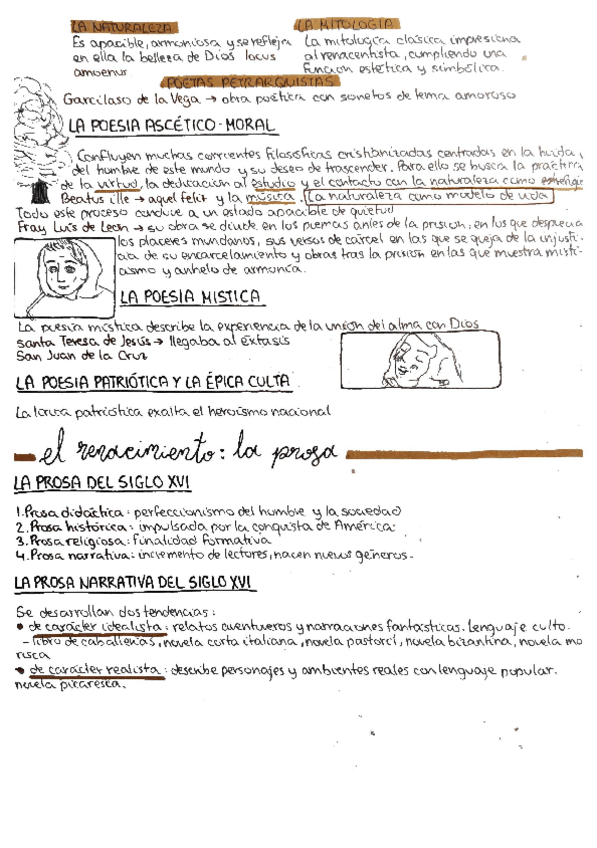 LA NATURALEZA
Es apacible, armoniosa y se refleja
en ella la belleza de Dios locus
amoenus
LA MITOLOGIA
La mitología clásica impresiona
al renacentista, cumpliendo una
funcion estética y simbólica.
POETAS PETRARQUISTAS
Garcilaso de la Vega → obra poética con sonetos de tema amoroso
LA POESIA ASCÉTICO-MORAL
Confluyen muchas corrientes filosóficas cristianizadas centradas en la huida
del hombre de este mundo y su deseo de trascender. Para ello se busca la práctica
de la virtud, la dedicación al estudio y el contacto con la naturaleza como
Beatus ille → aquel feliz y la música. La naturaleza como modelo de vida
Todo este proceso conduce a un estado apacible de quietud
Fray Luis de Leon → su obra se divide en los poemas antes de la prision, en los que desprecia
los placeres mundanos, sus versos de cárcel en las que se queja de la injusti-
cia de su encarcelamiento y obras tras la prision en las que muestra misti-
cismo y anhelo de armonía.
LA POESIA MISTICA
La puesia mística describe la experiencia de la union del alma con Dios
santa Teresa de Jesús → llegaba al éxtasis
San Juan de la Cruz
LA POESIA PATRIÓTICA Y LA ÉPICA CULTA
La lírica patriótica exalta el heroísmo nacional
el renacimiento: la prosa
LA PROSA DEL SIGLO XVI
1. Prosa didáctica: perfeccionismo del hombre y la sociedad
2. Prosa histórica: impulsada por la conquista de América.
3. Prosa religiosa: finalidad formativa
4. Prosa narrativa: incremento de lectores, nacen nuevos géneros.
LA PROSA NARRATIVA DEL SIGLO XVI
Se desarrollan dos tendencias:
• de carácter idealista: relatos aventureros y narraciones fantásticas. Lenguaje culto.
- libro de caballerías, novela corta italiana, novela pastoril, novela bizantina, novela mo
risca
• de carácter realista: describe personajes y ambientes reales con lenguaje popular.
novela picaresca.